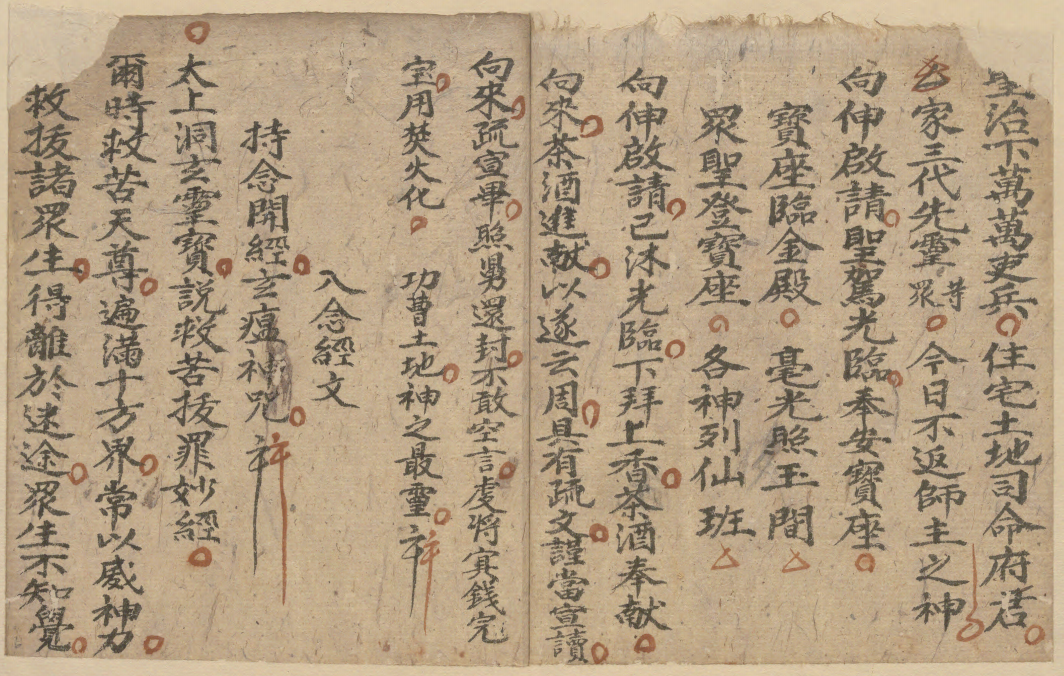 治下萬萬吏兵住宅土地司命府君
家三代先靈等眾今日不返師主之神
向伸啟請聖駕光臨奉安寶座
寶座臨金殿 毫光照玉間
眾聖登寶座 各神列仙班
向伸啟請已沐光臨下拜上香茶酒奉献
向來茶酒進献以遂云周具有疏文謹當宣讀
向來疏宣畢照舅還封不敢空言虔將冥錢完
宝用焚火化 功曹土地神之最靈
入念經文
持念開經玄瘟神咒
太上洞玄靈寶説救苦拔罪妙經
爾時救苦天尊遍滿十方界常以威神力
救拔諸眾生得離於迷途眾生不知覺